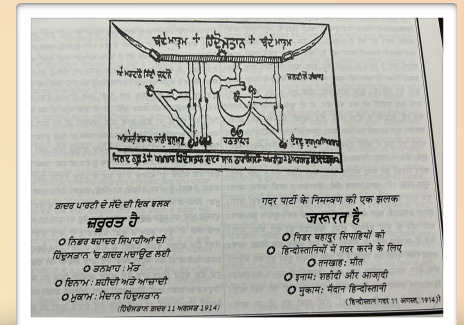 ਬੰਦੇ ਮਾਤ੍ਰਮ + ਹਿੰਦੁਸਤਾਨ + ਬੰਦੇ ਮਾਤ੍ਰਮ
ਗ਼ਦਰ ਪਾਰਟੀ ਦੇ ਸੱਦੇ ਦੀ ਇਕ ਝਲਕ
ਜ਼ਰੂਰਤ ਹੈ
ਨਿਡਰ ਬਹਾਦਰ ਸਿਪਾਹੀਆਂ ਦੀ
ਹਿੰਦੁਸਤਾਨ 'ਚ ਗ਼ਦਰ ਮਚਾਉਣ ਲਈ
ਤਨਖ਼ਾਹ : ਮੌਤ
ਇਨਾਮ : ਸ਼ਹੀਦੀ ਅਤੇ ਆਜ਼ਾਦੀ
ਮੁਕਾਮ : ਮੈਦਾਨ ਹਿੰਦੁਸਤਾਨ
(ਹਿੰਦੁਸਤਾਨ ਗ਼ਦਰ 11 ਅਗਸਤ 1914)
गदर पार्टी के निमन्त्रण की एक झलक
जरूरत है
निडर बहादुर सिपाहियों की
हिन्दोस्तानियों में गदर करने के लिए
तनखाह : मौत
इनाम : शहीदी और आज़ादी
मुकाम : मैदान हिन्दोस्तानी
(हिन्दोस्तान गदर 11 अगस्त, 1914)